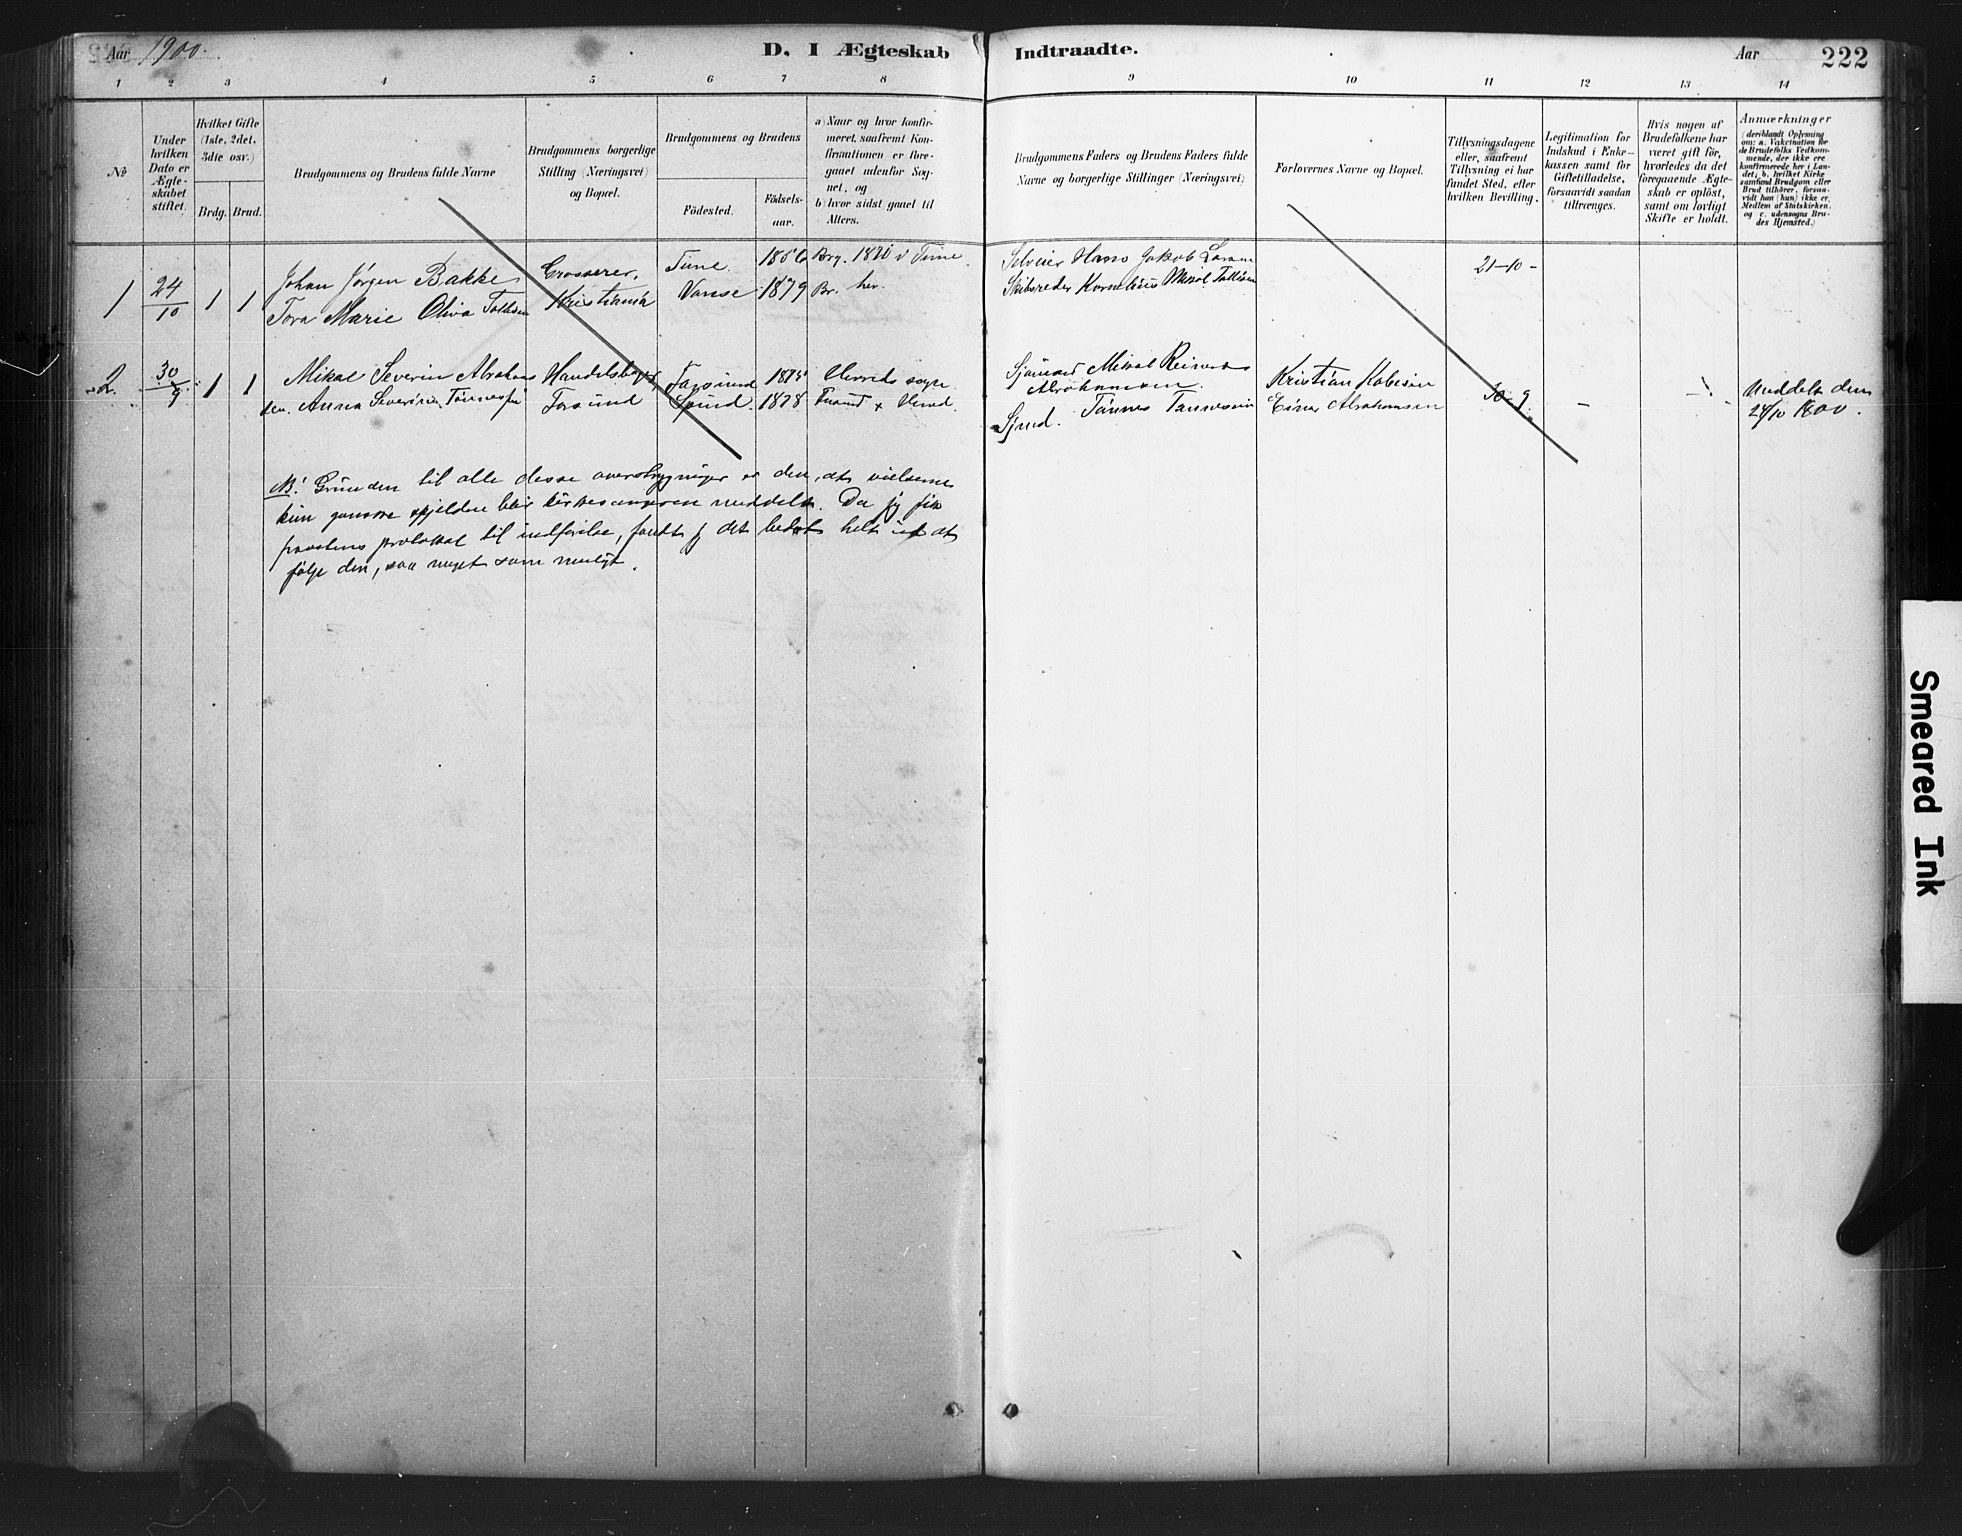 Aar 1900.
D. I Ægteskab Indtraadte.
Aar
222
1 2 3 4 5 6 7 8 9 10 11 12 13 14
No
Under
hvilken
Dato er
Ægte-
skabet
stiftet.
Hvilket Gifte
(1ste, 2det,
3die osv.)
Brdg. Brud.
Brudgommens og Brudens fulde Navne
Brudgommens borgerlige
Stilling (Næringsvei)
og Bopæl.
Brudgommens og Brudens
Födested.
Födsels-
aar.
a) Naar og hvor konfir-
meret, saafremt Kon-
firmationen er fore-
gaaet udenfor Sog-
net, og
b) hvor sidst gaaet til
Alters.
Brudgommens Faders og Brudens Faders fulde
Navne og borgerlige Stillinger (Næringsvei)
Forlovernes Navne og Bopæl.
Tillysningsdagene
eller, saafremt
Tillysning ei har
fundet Sted, efter
hvilken Bevilling.
Legitimation for
Indskud i Enke-
kassen samt for
Giftetilladelse,
forsaavidt saadan
tiltrænges.
Hvis nogen af
Brudefolkene har
været gift för,
hvorledes da det
foregaaende Ægte-
skab er oplöst,
samt om lovligt
Skifte er holdt.
Anmærkninger
(deriblandt Oplysning
om: a. Vakcination for
de Brudefolks Vedkom-
mende, der ikke ere
konfirmerede her i Lan-
det; b. hvilket Kirke
samfund Brudgom eller
Brud tilhörer, forsaa-
vidt han (hun) ikke er
Medlem af Statskirken,
og c. udensogns Bru-
des Hjemsted.)
1 24/10 1 1 Johan Jörgen Bakke Grosserer, Tune. 1866 Brg. 1870 i Tune. Selveier Hans Jakob 21-10-
Tora Marie Oliva Kristiania Vanse 1879 Br. her. Skibsreder Kornelius Mikal
2. 30/9 1 1 Mikal Severin Abraham Farsund 1875 Herreds sogn Mikal Reinert Kristian 30-9 - Meddelt den
sen. Anna Severine Farsund Spind. 1878 Herred. Abrahamsen. Einar Abrahamsen 24/10 1900.
Tönnes Tönnesen
NB! Grunden til alle disse er den, at vielserne
kun ganske sjelden blir meddelt. Da jeg fik
provstens protokol til indförelse, fandt jeg det bedst helt ud at
fölge den, saa meget som muligt.
Smeared Ink